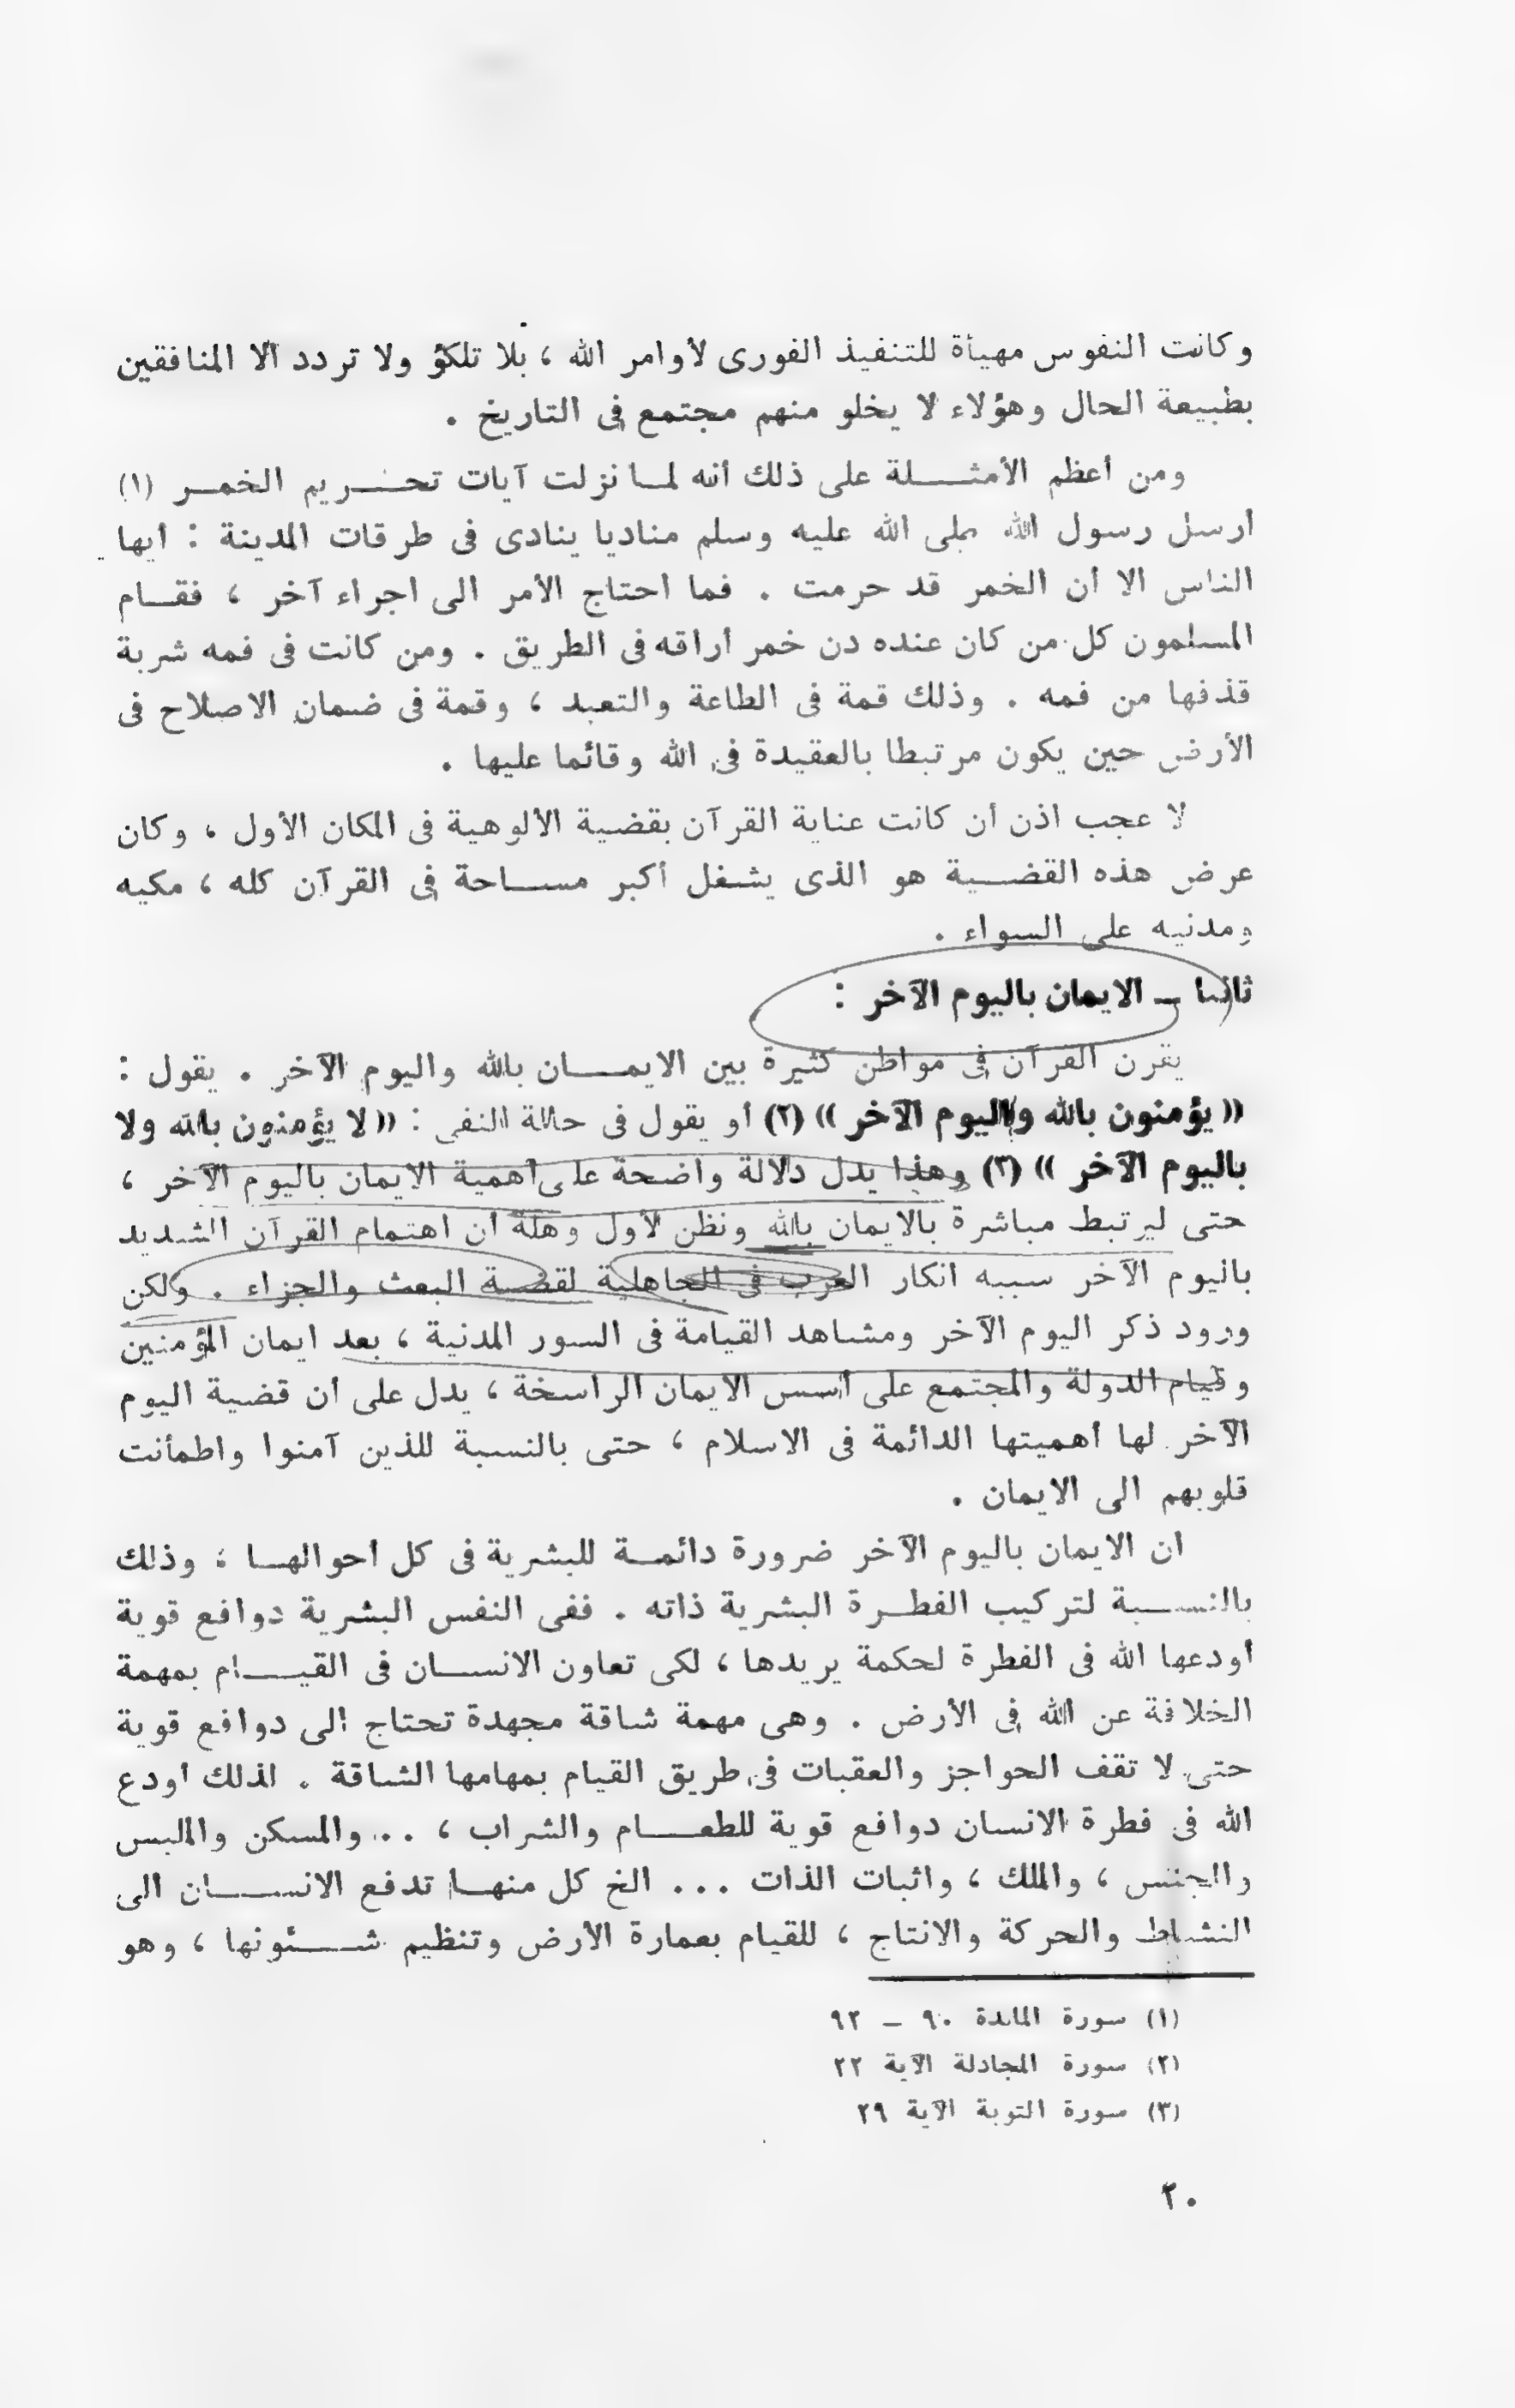 وكانت النفوس مهيأة للتنفيذ الفورى لأوامر الله ، بلا تلكؤ ولا تردد الا المنافقين
بطبيعة الحال وهؤلاء لا يخلو منهم مجتمع فى التاريخ .
ومن أعظم الأمثلة على ذلك أنه لما نزلت آيات تحريم الخمر (١)
أرسل رسول الله صلى الله عليه وسلم مناديا ينادى فى طرقات المدينة : أيها
الناس الا أن الخمر قد حرمت . فما احتاج الأمر الى اجراء آخر ، فقام
المسلمون كل من كان عنده دن خمر أراقه فى الطريق . ومن كانت فى فمه شربة
قذفها من فمه . وذلك قمة فى الطاعة والتعبد ، وقمة فى ضمان الاصلاح فى
الأرض حين يكون مرتبطا بالعقيدة فى الله وقائما عليها .
لا عجب اذن أن كانت عناية القرآن بقضية الألوهية فى المكان الأول ، وكان
عرض هذه القضية هو الذى يشغل أكبر مساحة فى القرآن كله ، مكيه
ومدنيه على السواء .
ثانيا – الايمان باليوم الآخر :
يقرن القرآن فى مواطن كثيرة بين الايمان بالله واليوم الآخر . يقول :
« يؤمنون بالله واليوم الآخر » (٢) أو يقول فى حالة النفى : « لا يؤمنون بالله ولا
باليوم الآخر » (٣) وهذا يدل دلالة واضحة على أهمية الايمان باليوم الآخر ،
حتى ليرتبط مباشرة بالايمان بالله ونظن لأول وهلة أن اهتمام القرآن الشديد
باليوم الآخر سببه انكار العرب فى الجاهلية لقضية البعث والجزاء . ولكن
ورود ذكر اليوم الآخر ومشاهد القيامة فى السور المدنية ، بعد ايمان المؤمنين
وقيام الدولة والمجتمع على أسس الايمان الراسخة ، يدل على أن قضية اليوم
الآخر لها أهميتها الدائمة فى الاسلام ، حتى بالنسبة للذين آمنوا واطمأنت
قلوبهم الى الايمان .
ان الايمان باليوم الآخر ضرورة دائمة للبشرية فى كل أحوالها ، وذلك
بالنسبة لتركيب الفطرة البشرية ذاته . ففى النفس البشرية دوافع قوية
أودعها الله فى الفطرة لحكمة يريدها ، لكى تعاون الانسان فى القيام بمهمة
الخلافة عن الله فى الأرض . وهى مهمة شاقة مجهدة تحتاج الى دوافع قوية
حتى لا تقف الحواجز والعقبات فى طريق القيام بمهامها الشاقة . لذلك أودع
الله فى فطرة الانسان دوافع قوية للطعام والشراب ، .. والمسكن والملبس
والجنس ، والملك ، واثبات الذات ... الخ كل منها تدفع الانسان الى
النشاط والحركة والانتاج ، للقيام بعمارة الأرض وتنظيم شئونها ، وهو
(١) سورة المائدة ٩٠ – ٩٢
(٢) سورة المجادلة الآية ٢٢
(٣) سورة التوبة الآية ٢٩
٢٠